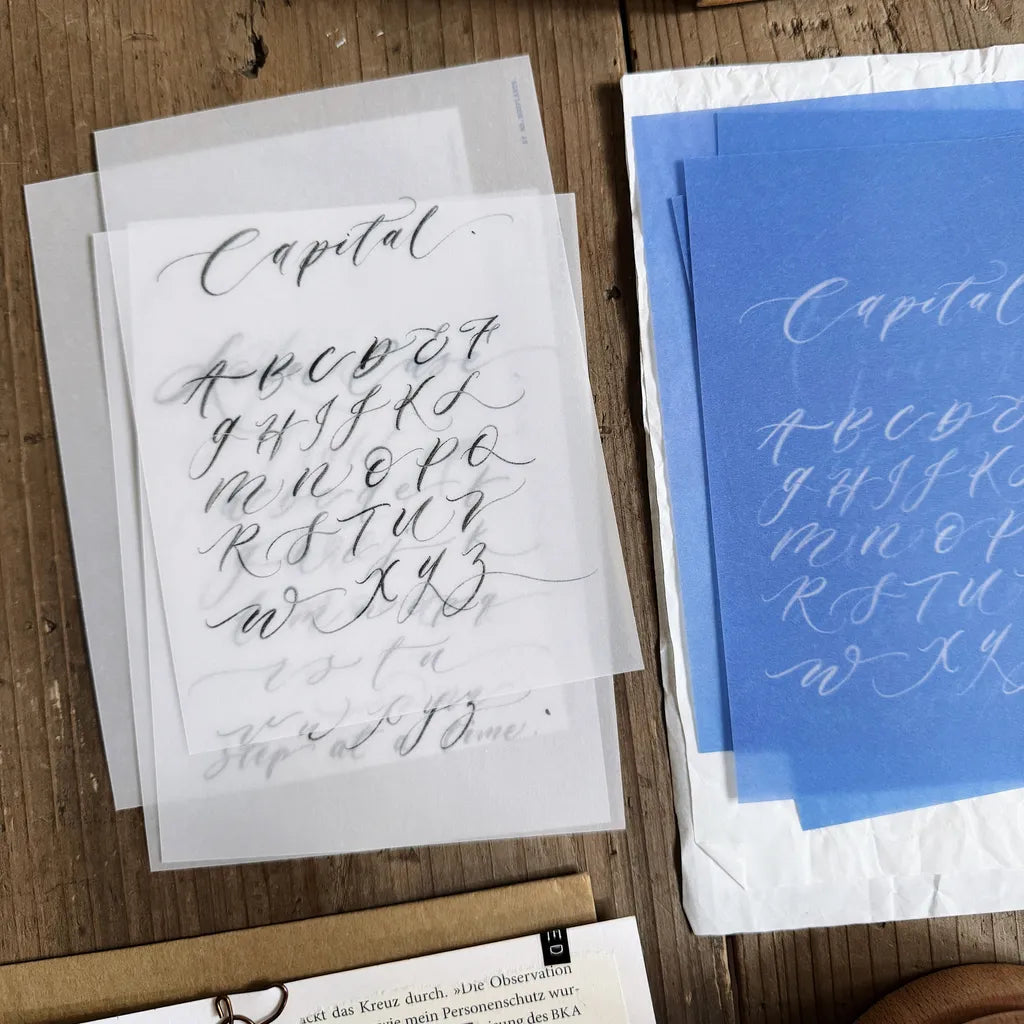 Capital.
A B C D E F
G H I J K L
M N O P Q
R S T U V
W X Y Z
r s t u
v w x y z
step at a time.
Capital
A B C D E
G H I J K
M N O P
R S T U
W X Y
ED
ackt das Kreuz durch. »Die Observation
wie mein Personenschutz wur-
ung des BKA